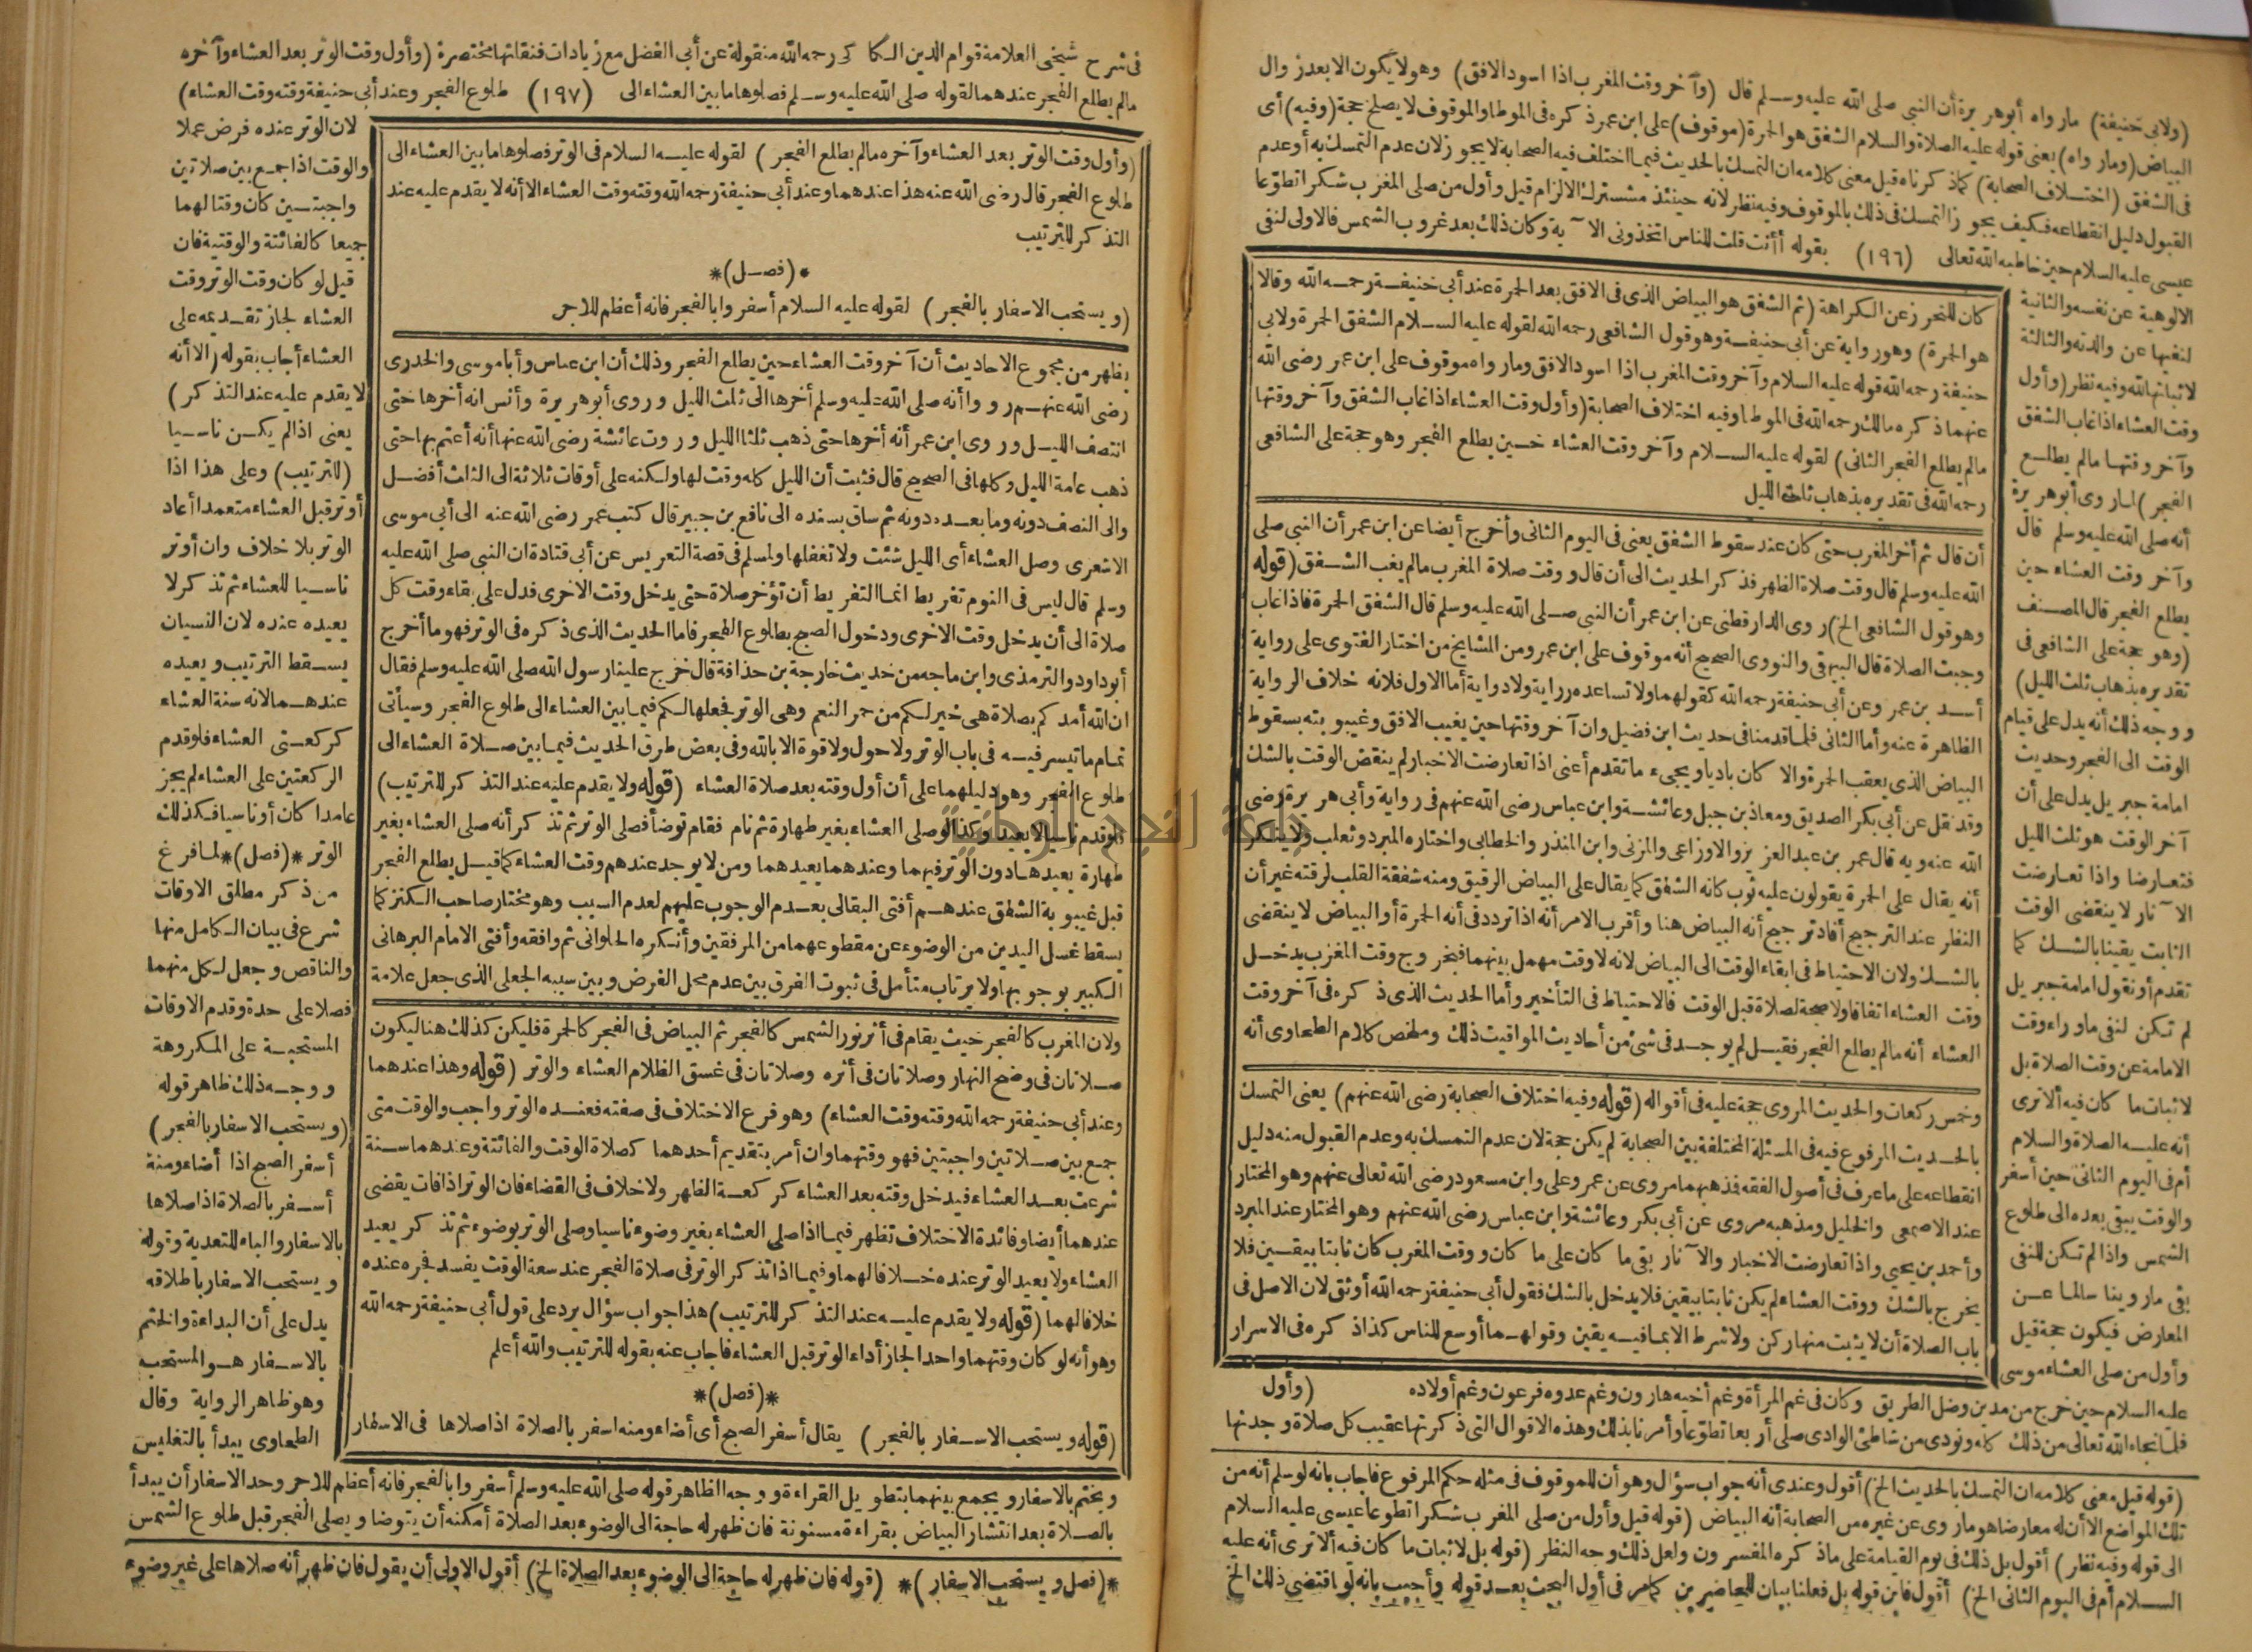 (ولابى حنيفة) مارواه أبوهريرة أن النبى صلى الله عليه وسلم قال (وآخر وقت المغرب اذا اسود الافق) وهو لا يكون الا بعد زوال
البياض (ومارواه) يعنى قوله عليه الصلاة والسلام الشفق هو الحمرة (موقوف) على ابن عمر ذكره فى الموطا والموقوف لا يصلح حجة (وفيه) أى
فى الشفق (اختلاف الصحابة) كما ذكرناه قيل معنى كلامه ان التمسك بالحديث فيما اختلف فيه الصحابة لا يجوز لان عدم التمسك به أو عدم
القبول دليل انقطاعه فكيف يجوز التمسك فى ذلك بالموقوف وفيه نظر لانه حينئذ مشترك الالزام قيل وأول من صلى المغرب شكرا تطوعا
عيسى عليه السلام حين خاطبه الله تعالى (١٩٦) بقوله أأنت قلت للناس اتخذونى الآية وكان ذلك بعد غروب الشمس فالاولى لنفى
الالوهية عن نفسه والثانية
لنفيها عن والدته والثالثة
لاثباتها لله وفيه نظر (وأول
وقت العشاء اذا غاب الشفق
وآخر وقتها مالم يطلع
الفجر) لما روى أبوهريرة
أنه صلى الله عليه وسلم قال
وآخر وقت العشاء حين
يطلع الفجر قال المصنف
(وهو حجة على الشافعى فى
تقديره بذهاب ثلث الليل)
ووجه ذلك أنه يدل على قيام
الوقت الى الفجر وحديث
امامة جبريل يدل على أن
آخر الوقت هو ثلث الليل
فتعارضا واذا تعارضت
الآثار لا ينقضى الوقت
الثابت يقينا بالشك كما
تقدم أو نقول امامة جبريل
لم تكن لنفى ماوراء وقت
الامامة عن وقت الصلاة بل
لاثبات ما كان فيه ألا ترى
أنه عليه الصلاة والسلام
أم فى اليوم الثانى حين أسفر
والوقت يبقى بعده الى طلوع
الشمس واذا لم تكن للنفى
بقى ماروينا سالما عن
المعارض فيكون حجة قيل
وأول من صلى العشاء موسى
كان للتحرز عن الكراهة (ثم الشفق هو البياض الذى فى الافق بعد الحمرة عند أبى حنيفة رحمه الله وقالا
هو الحمرة) وهو رواية عن أبى حنيفة وهو قول الشافعى رحمه الله لقوله عليه السلام الشفق الحمرة ولابى
حنيفة رحمه الله قوله عليه السلام وآخر وقت المغرب اذا اسود الافق ومارواه موقوف على ابن عمر رضى الله
عنهما ذكره مالك رحمه الله فى الموطا وفيه اختلاف الصحابة (وأول وقت العشاء اذا غاب الشفق وآخر وقتها
مالم يطلع الفجر الثانى) لقوله عليه السلام وآخر وقت العشاء حين يطلع الفجر وهو حجة على الشافعى
رحمه الله فى تقديره بذهاب ثلث الليل
أن قال ثم أخر المغرب حتى كان عند سقوط الشفق يعنى فى اليوم الثانى وأخرج أيضا عن ابن عمر أن النبى صلى
الله عليه وسلم قال وقت صلاة الظهر فذكر الحديث الى أن قال ووقت صلاة المغرب مالم يغب الشفق (قوله
وهو قول الشافعى الخ) روى الدارقطنى عن ابن عمر أن النبى صلى الله عليه وسلم قال الشفق الحمرة فاذا غاب
وجبت الصلاة قال البيهقى والنووى الصحيح أنه موقوف على ابن عمر ومن المشايخ من اختار الفتوى على رواية
أسد بن عمر وعن أبى حنيفة رحمه الله كقولهما ولا تساعده رواية ولا دراية أما الاول فلانه خلاف الرواية
الظاهرة عنه وأما الثانى فلما قدمنا فى حديث ابن فضيل وان آخر وقتها حين يغيب الافق وغيبوبته بسقوط
البياض الذى يعقب الحمرة والا كان باديا ويجىء ما تقدم أعنى اذا تعارضت الاخبار لم ينقض الوقت بالشك
وقد نقل عن أبى بكر الصديق ومعاذ بن جبل وعائشة وابن عباس رضى الله عنهم فى رواية وأبى هريرة رضى
الله عنه وبه قال عمر بن عبد العزيز والاوزاعى والمزنى وابن المنذر والخطابى واختاره المبرد وثعلب ولا ينكر
أنه يقال على الحمرة يقولون عليه ثوب كانه الشفق كما يقال على البياض الرقيق ومنه شفقة القلب لرقته غير أن
النظر عند الترجيح أفاد ترجيح أنه البياض هنا وأقرب الامر أنه اذا تردد فى أنه الحمرة أو البياض لا ينقضى
بالشك ولان الاحتياط فى ابقاء الوقت الى البياض لانه لا وقت مهمل بينهما فبخروج وقت المغرب يدخل
وقت العشاء اتفاقا ولا صحة لصلاة قبل الوقت فالاحتياط فى التأخير وأما الحديث الذى ذكره فى آخر وقت
العشاء أنه مالم يطلع الفجر فقيل لم يوجد فى شئ من أحاديث المواقيت ذلك وملخص كلام الطحاوى أنه
وخمس ركعات والحديث المروى حجة عليه فى أقواله (قوله وفيه اختلاف الصحابة رضى الله عنهم) يعنى التمسك
بالحديث المرفوع فيه فى المسئلة المختلفة بين الصحابة لم يكن حجة لان عدم التمسك به وعدم القبول منه دليل
انقطاعه على ما عرف فى أصول الفقه فذهبهما مروى عن عمر وعلى وابن مسعود رضى الله تعالى عنهم وهو المختار
عند الاصمعى والخليل ومذهبه مروى عن أبى بكر وعائشة وابن عباس رضى الله عنهم وهو المختار عند المبرد
وأحمد بن يحيى واذا تعارضت الاخبار والآثار بقى ما كان على ما كان ووقت المغرب كان ثابتا بيقين فلا
يخرج بالشك ووقت العشاء لم يكن ثابتا بيقين فلا يدخل بالشك فقول أبى حنيفة رحمه الله أوثق لان الاصل فى
باب الصلاة أن لا يثبت منها ركن ولا شرط الا بما فيه يقين وقولهما أوسع للناس كذا ذكره فى الاسرار
عليه السلام حين خرج من مدين وضل الطريق وكان فى غم المرأة وغم أخيه هارون وغم عدوه فرعون وغم أولاده (وأول
فلما نجاه الله تعالى من ذلك كله ونودى من شاطئ الوادى صلى أربعا تطوعا وأمرنا بذلك وهذه الاقوال التى ذكرتها عقيب كل صلاة وجدتها
(قوله قيل معنى كلامه ان التمسك بالحديث الخ) أقول وعندى أنه جواب سؤال وهو أن للموقوف فى مثله حكم المرفوع فاجاب بانه لو سلم أنه من
تلك المواضع الا أن له معارضا هو ماروى عن غيره من الصحابة أنه البياض (قوله قيل وأول من صلى المغرب شكرا تطوعا عيسى عليه السلام
الى قوله وفيه نظر) أقول بل ذلك فى يوم القيامة على ما ذكره المفسرون ولعل ذلك وجه النظر (قوله بل لاثبات ما كان فيه ألا ترى أنه عليه
السلام أم فى اليوم الثانى الخ) أقول فاين قوله بل فعلنا بيان للحاضرين كما مر فى أول البحث بعد قوله وأجيب بانه لو اقتضى ذلك الخ
فى شرح شيخى العلامة قوام الدين الكاكى رحمه الله منقولة عن أبى الفضل مع زيادات فنقلتها مختصرة (وأول وقت الوتر بعد العشاء وآخره
مالم يطلع الفجر عندهما لقوله صلى الله عليه وسلم فصلوها ما بين العشاء الى (١٩٧) طلوع الفجر وعند أبى حنيفة وقته وقت العشاء)
لان الوتر عنده فرض عملا
والوقت اذا جمع بين صلاتين
واجبتين كان وقتا لهما
جميعا كالفائتة والوقتية فان
قيل لو كان وقت الوتر وقت
العشاء لجاز تقديمه على
العشاء أجاب بقوله (الا أنه
لا يقدم عليه عند التذكر)
يعنى اذا لم يكن ناسيا
(للترتيب) وعلى هذا اذا
أوتر قبل العشاء متعمدا أعاد
الوتر بلا خلاف وان أوتر
ناسيا للعشاء ثم تذكر لا
يعيده عنده لان النسيان
يسقط الترتيب ويعيده
عندهما لانه سنة العشاء
كركعتى العشاء فلو قدم
الركعتين على العشاء لم يجز
عامدا كان أو ناسيا فكذلك
الوتر *(فصل)* لما فرغ
من ذكر مطلق الاوقات
شرع فى بيان الكامل منها
والناقص وجعل لكل منهما
فصلا على حدة وقدم الاوقات
المستحبة على المكروهة
ووجه ذلك ظاهر قوله
(ويستحب الاسفار بالفجر)
أسفر الصبح اذا أضاء ومنه
أسفر بالصلاة اذا صلاها
بالاسفار والباء للتعدية وقوله
ويستحب الاسفار باطلاقه
يدل على أن البداءة والختم
بالاسفار هو المستحب
وهو ظاهر الرواية وقال
الطحاوى يبدأ بالتغليس
(وأول وقت الوتر بعد العشاء وآخره مالم يطلع الفجر) لقوله عليه السلام فى الوتر فصلوها ما بين العشاء الى
طلوع الفجر قال رضى الله عنه هذا عندهما وعند أبى حنيفة رحمه الله وقته وقت العشاء الا أنه لا يقدم عليه عند
التذكر للترتيب
*(فصل)*
(ويستحب الاسفار بالفجر) لقوله عليه السلام أسفروا بالفجر فانه أعظم للاجر
يظهر من مجموع الاحاديث أن آخر وقت العشاء حين يطلع الفجر وذلك أن ابن عباس وأبا موسى والخدرى
رضى الله عنهم رووا أنه صلى الله عليه وسلم أخرها الى ثلث الليل وروى أبوهريرة وأنس انه أخرها حتى
انتصف الليل وروى ابن عمر أنه أخرها حتى ذهب ثلثا الليل وروت عائشة رضى الله عنها أنه أعتم بها حتى
ذهب عامة الليل وكلها فى الصحيح قال فثبت أن الليل كله وقت لها ولكنه على أوقات ثلاثة الى الثلث أفضل
والى النصف دونه وما بعده دونه ثم ساق بسنده الى نافع بن جبير قال كتب عمر رضى الله عنه الى أبى موسى
الاشعرى وصل العشاء أى الليل شئت ولا تغفلها ولمسلم فى قصة التعريس عن أبى قتادة ان النبى صلى الله عليه
وسلم قال ليس فى النوم تفريط انما التفريط أن تؤخر صلاة حتى يدخل وقت الاخرى فدل على بقاء وقت كل
صلاة الى أن يدخل وقت الاخرى ودخول الصبح بطلوع الفجر فاما الحديث الذى ذكره فى الوتر فهو ما أخرج
أبو داود والترمذى وابن ماجه من حديث خارجة بن حذافة قال خرج علينا رسول الله صلى الله عليه وسلم فقال
ان الله أمدكم بصلاة هى خير لكم من حمر النعم وهى الوتر فجعلها لكم فيما بين العشاء الى طلوع الفجر وسيأتى
تمام ما تيسر فيه فى باب الوتر ولا حول ولا قوة الا بالله وفى بعض طرق الحديث فيما بين صلاة العشاء الى
طلوع الفجر وهو دليلهما على أن أول وقته بعد صلاة العشاء (قوله ولا يقدم عليه عند التذكر للترتيب)
فلو قدم ناسيا لا يعيد وكذا لو صلى العشاء بغير طهارة ثم نام فقام توضأ فصلى الوتر ثم تذكر أنه صلى العشاء بغير
طهارة يعيدها دون الوتر فيهما وعندهما يعيدهما ومن لا يوجد عندهم وقت العشاء كما قيل يطلع الفجر
قبل غيبوبة الشفق عندهم أفتى البقالى بعدم الوجوب عليهم لعدم السبب وهو مختار صاحب الكنز كما
يسقط غسل اليدين من الوضوء عن مقطوعهما من المرفقين وأنكره الحلوانى ثم وافقه وأفتى الامام البرهانى
الكبير بوجوبها ولا يرتاب متأمل فى ثبوت الفرق بين عدم محل الفرض وبين سببه الجعلى الذى جعل علامة
ولان المغرب كالفجر حيث يقام فى أثر نور الشمس كالفجر ثم البياض فى الفجر كالحمرة فليكن كذلك هنا ليكون
صلاتان فى وضح النهار وصلاتان فى أثره وصلاتان فى غسق الظلام العشاء والوتر (قوله وهذا عندهما
وعند أبى حنيفة رحمه الله وقته وقت العشاء) وهو فرع الاختلاف فى صفته فعنده الوتر واجب والوقت متى
جمع بين صلاتين واجبتين فهو وقتهما وان أمر بتقديم أحدهما كصلاة الوقت والفائتة وعندهما سنة
شرعت بعد العشاء فيدخل وقته بعد العشاء كركعة الظهر ولا خلاف فى القضاء فان الوتر اذا فات يقضى
عندهما أيضا وفائدة الاختلاف تظهر فيما اذا صلى العشاء بغير وضوء ناسيا وصلى الوتر بوضوء ثم تذكر يعيد
العشاء ولا يعيد الوتر عنده خلافا لهما وفيما اذا تذكر الوتر فى صلاة الفجر عند سعة الوقت يفسد فجره عنده
خلافا لهما (قوله ولا يقدم عليه عند التذكر للترتيب) هذا جواب سؤال يرد على قول أبى حنيفة رحمه الله
وهو أنه لو كان وقتهما واحد الجاز أداء الوتر قبل العشاء فاجاب عنه بقوله للترتيب والله أعلم
*(فصل)*
(قوله ويستحب الاسفار بالفجر) يقال أسفر الصبح أى أضاء ومنه اسفر بالصلاة اذا صلاها فى الاسفار
ويختم بالاسفار ويجمع بينهما بتطويل القراءة ووجه الظاهر قوله صلى الله عليه وسلم أسفروا بالفجر فانه أعظم للاجر وحد الاسفار أن يبدأ
بالصلاة بعد انتشار البياض بقراءة مسنونة فان ظهر له حاجة الى الوضوء بعد الصلاة أمكنه أن يتوضا ويصلى الفجر قبل طلوع الشمس
*(فصل ويستحب الاسفار)* (قوله فان ظهر له حاجة الى الوضوء بعد الصلاة الخ) أقول الاولى أن يقول فان ظهر أنه صلاها على غير وضوء
جامعة النجاح الوطنية